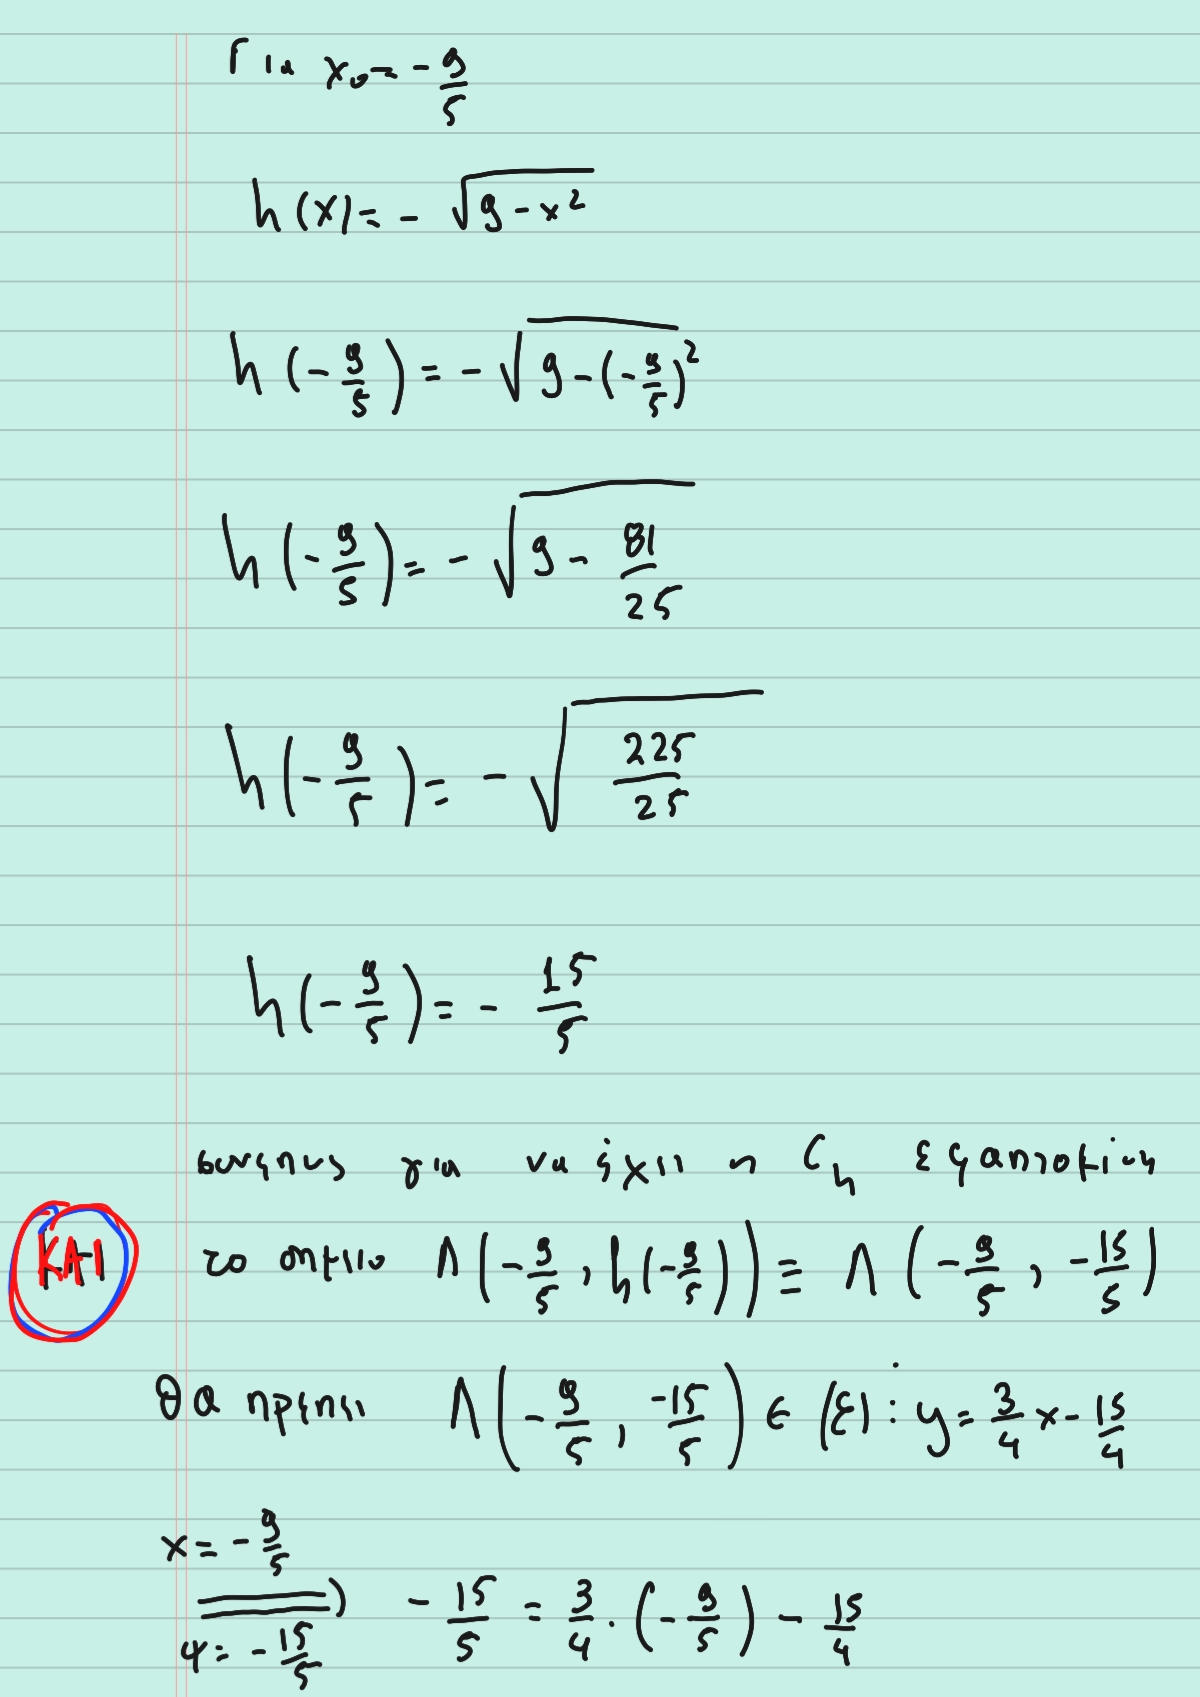 Για x₀ = -9/5
h(x) = - √(9 - x²)
h(-9/5) = - √(9 - (-9/5)²)
h(-9/5) = - √(9 - 81/25)
h(-9/5) = - √(225/25)
h(-9/5) = - 15/5
συνεπως για να έχει η C_h εφαπτομένη
ΚΑΙ το σημειο Λ(-9/5, h(-9/5)) ≡ Λ(-9/5, -15/5)
θα πρέπει Λ(-9/5, -15/5) ∈ (ε): y = 3/4 x - 15/4
x = -9/5
ψ = -15/5 ⟹ - 15/5 = 3/4 · (-9/5) - 15/4